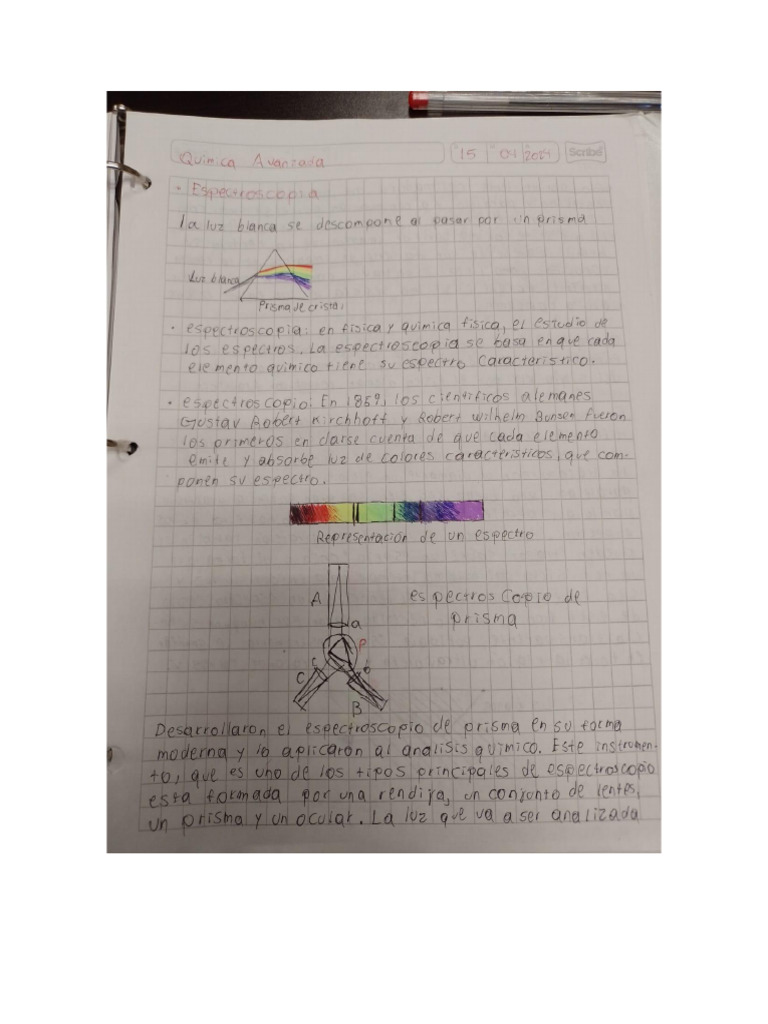 Química Avanzada 15 04 2024 Scribe
• Espectroscopia
La luz blanca se descompone al pasar por un prisma
Luz blanca
Prisma de cristal
• espectroscopia: en fisica y quimica fisica, el estudio de
los espectros. La espectroscopia se basa en que cada
elemento quimico tiene su espectro caracteristico.
• espectroscopio: En 1859, los cientificos alemanes
Gustav Robert Kirchhoff y Robert Wilhelm Bunsen fueron
los primeros en darse cuenta de que cada elemento
emite y absorbe luz de colores caracteristicos, que com-
ponen su espectro.
Representación de un espectro
A
a
espectroscopio de
prisma
P
c
b
C
B
Desarrollaron el espectroscopio de prisma en su forma
moderna y lo aplicaron al analisis quimico. Este instrumen-
to, que es uno de los tipos principales de espectroscopio
esta formada por una rendija, un conjunto de lentes,
un prisma y un ocular. La luz que va a ser analizada